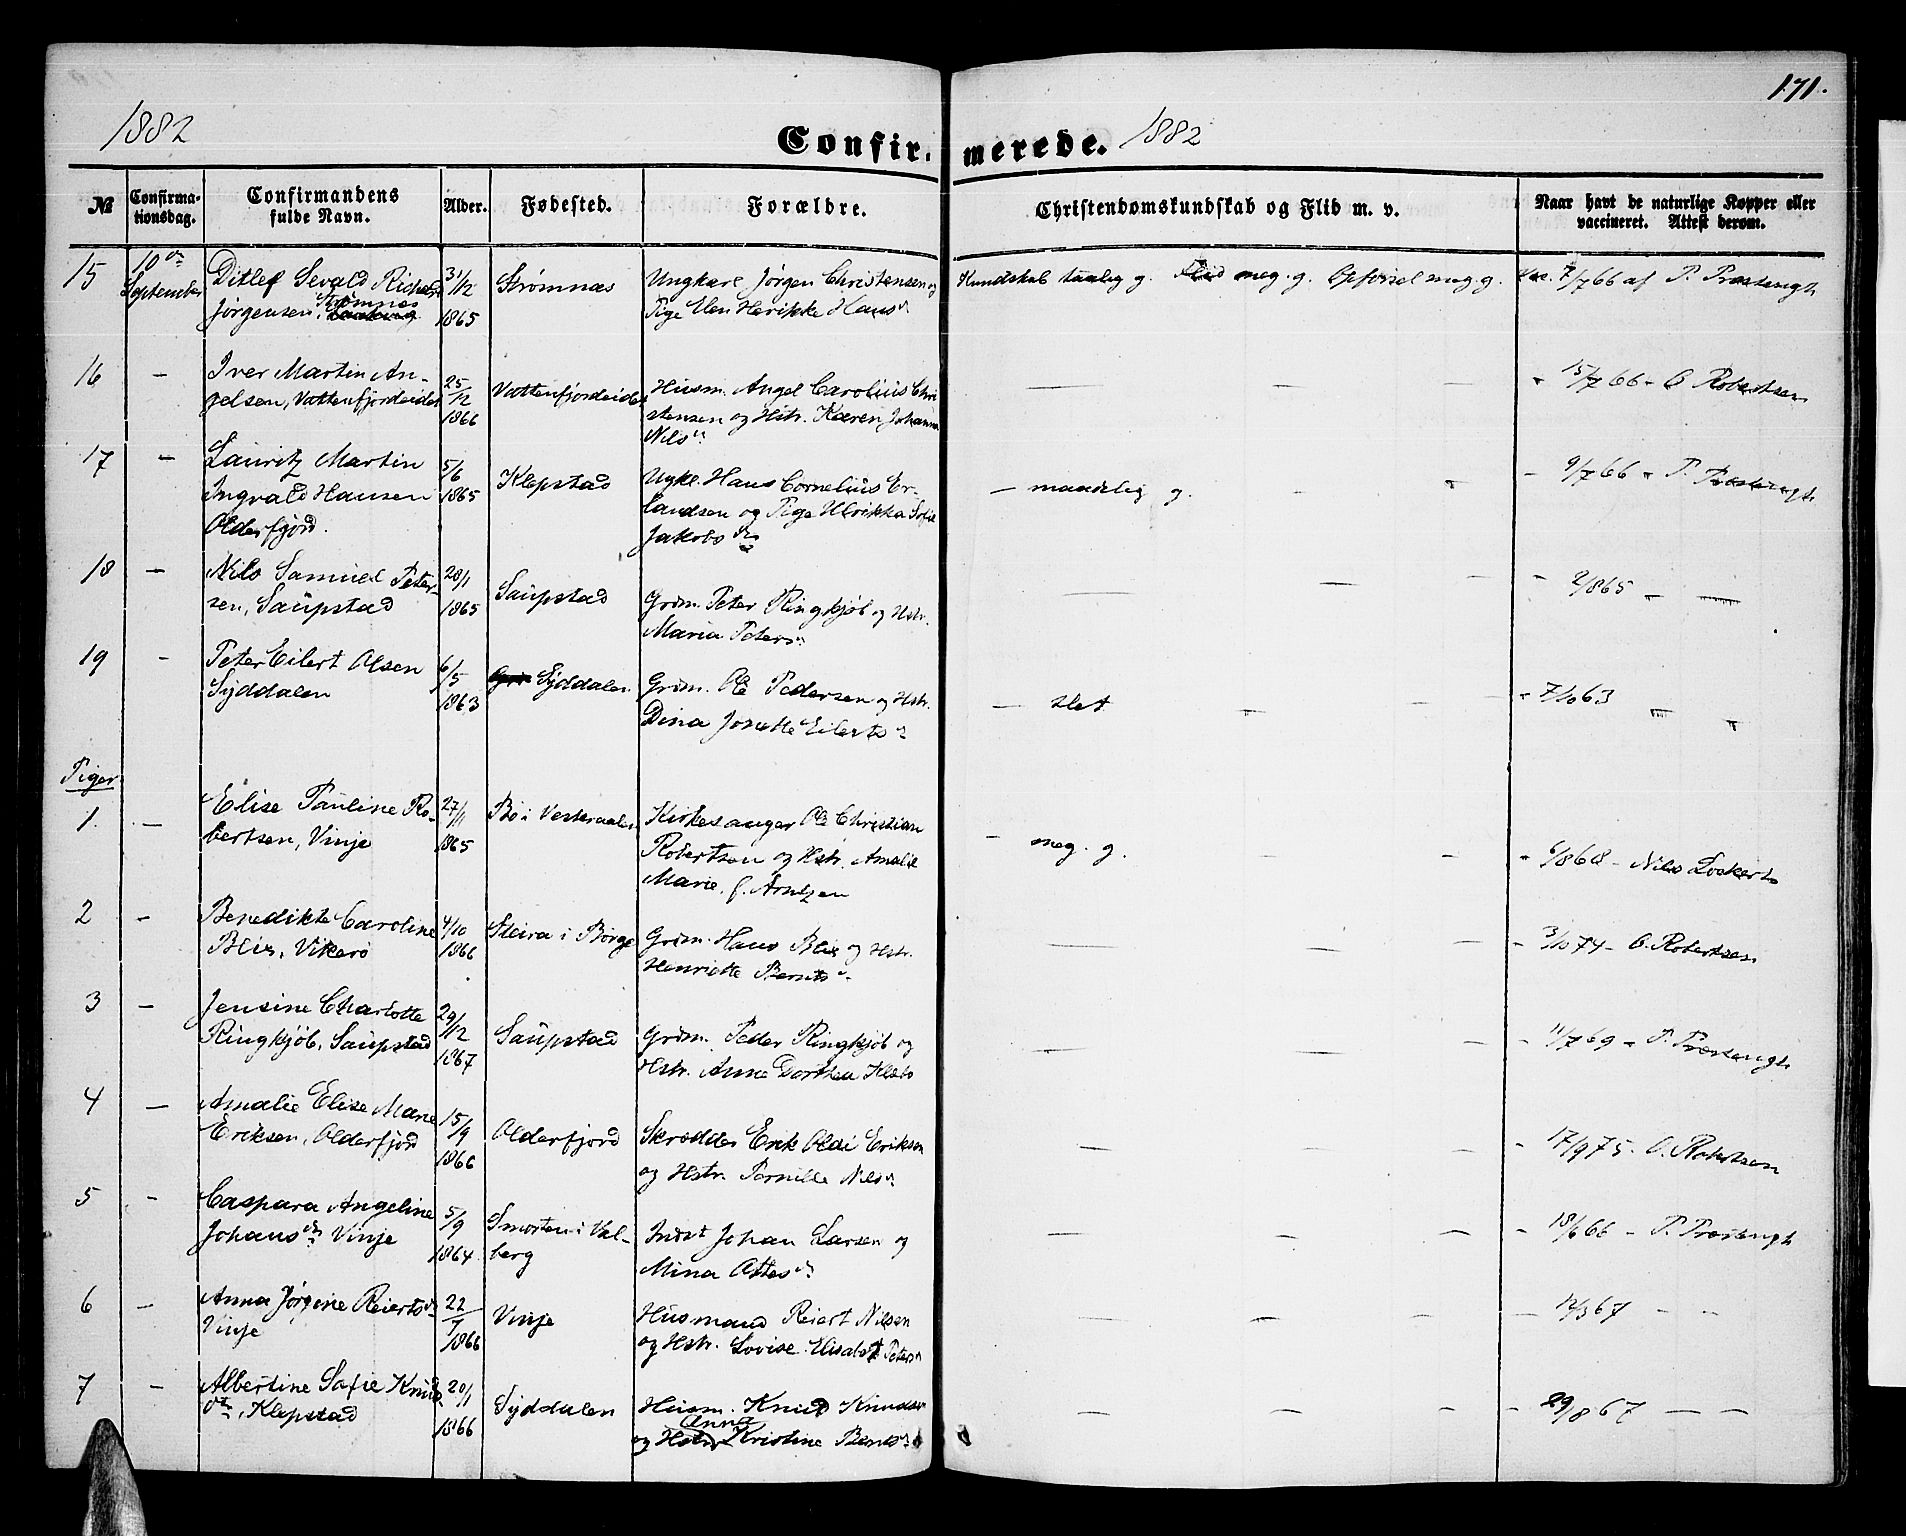 171.
1882
Confirmerede. 1882
№
Confirmationsdag.
Confirmandens fulde Navn.
Alder.
Fødested.
Forældre.
Christendomskundskab og Flid m. v.
Naar havt de naturlige Kopper eller vaccineret. Attest derom.
15 10de Ditlef Sevald Richard 31/12 Strømnæs Ungkarl Jørgen Christensen og Kundskab taalig g. Flid meg. g. Opførsel meg. g. Vac. 7/7 66 af P. Præstengh
September Jørgensen, Strømnæs 1865 Pige Elen Herikke Hansd
16 — Iver Martin An- 25/12 Vattenfjordeidet Husm. Angel Carolius Chri — — — " 15/7 66 - O. Robertsen
gelsen, Vattenfjordeidet 1866 stensen og Hstr. Karen Johanna
Nilsd
17 — Lauritz Martin 5/6 Klepstad Ugkl. Hans Cornelius Er- — maadelig g. — " — 9/7 66 " P. Præstengh
Ingvald Hansen 1865 landsen og Pige Ulrikka Sofie
Olderfjord. Jakobsdtr
18 — Nils Samuel Peter- 28/1 Saupstad Grdm. Peter Ringkjøb og Hstr. — — — " 2/8 65 — —
sen, Saupstad 1865 Maria Petersd
19 — Peter Eilert Olsen 6/5 Syddalen Grdm. Ole Pedersen og Hstr. — slet — — — " 7/10 63 " "
Syddalen 1863 Dina Jonette Eilertsd
Piger
1. — Elise Pauline Ro- 27/11 Bø i Vesteraalen Kirkesanger Ole Christian — meg. g. — — " 6/8 68 - Nils Lockert
bertsen, Vinje 1865 Robertsen og Hstr. Amalie
Marie f. Arntzen
2 — Benedikte Caroline 4/10 Steira i Borge Grdm. Hans Blix og Hstr. — — — — 3/10 74 - O. Robertsen
Blix, Vikerø 1866 Henriette Berntsd.
3 — Jensine Charlotte 29/12 Saupstad Grdm. Peder Ringkjøb og — — — — 11/7 69 - P. Præstengh
Ringkjøb, Saupstad 1867 Hstr. Anne Dorthea Klæbo
4 — Amalie Elise Marie 15/9 Olderfjord Skrædder Erik Olai Eriksen — — — — 17/9 75. O. Robertsen
Eriksen, Olderfjord 1866 og Hstr. Pernille Nilsd
5 — Caspara Angeline 5/9 Smorten i Val- Inderst Johan Larsen og — — — — 18/6 66 - P. Præstengh
Johansdtr Vinje 1864. berg Mina Ottesd
6 — Anna Jørgine Reiertsd 22/7 Vinje Husmand Reiert Nilsen — — — — 12/3 67 — —
Vinje 1866 og Hstr. Lovise Elisabet Petersd
7 — Albertine Sofie Knud- 20/1 Syddalen Husm. Knud Knudsen — — — — 29/8 67 — —
dtr, Klepstad 1866 og Hstr Anna Kristine Bentsd